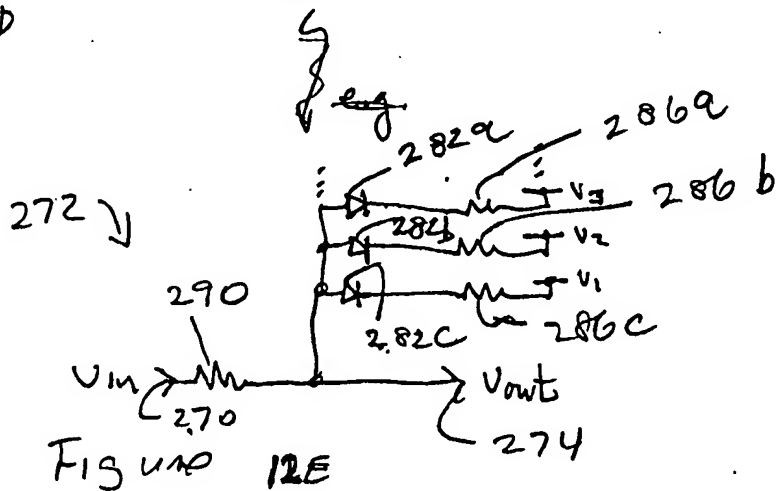 e.g
282a
286a
V3
286b
282b
V2
272
V1
290
282C
286C
Vin
Vout
270
274
Figure 12E